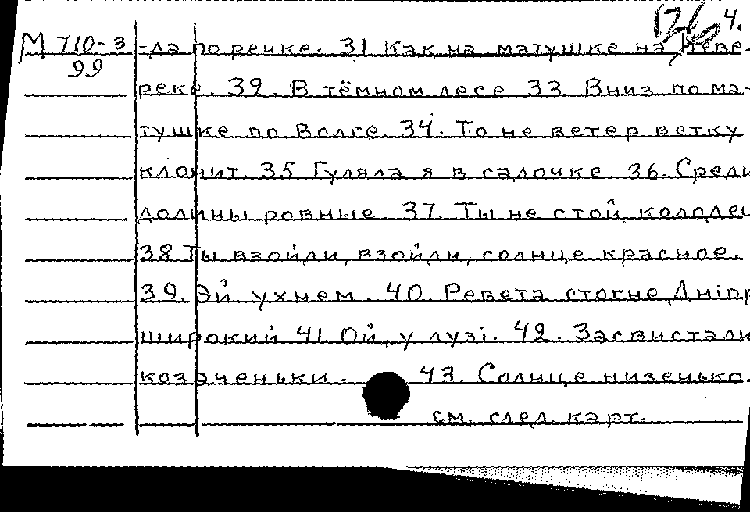 4.
М 710-3 -да по речке. 31 Как на матушке на Неве-
99
реке. 32. В тёмном лесе 33. Вниз по ма-
тушке по Волге. 34. То не ветер ветку
клонит. 35 Гуляла я в садочке 36. Среди
долины ровные. 37. Ты не стой, колодец
38 Ты взойди, взойди, солнце красное.
39. Эй ухнем. 40. Ревета стогне Дніпр
широкий 41 Ой, у лузі. 42. Засвистали
козаченьки. 43. Солнце низенько.
см. след. карт.